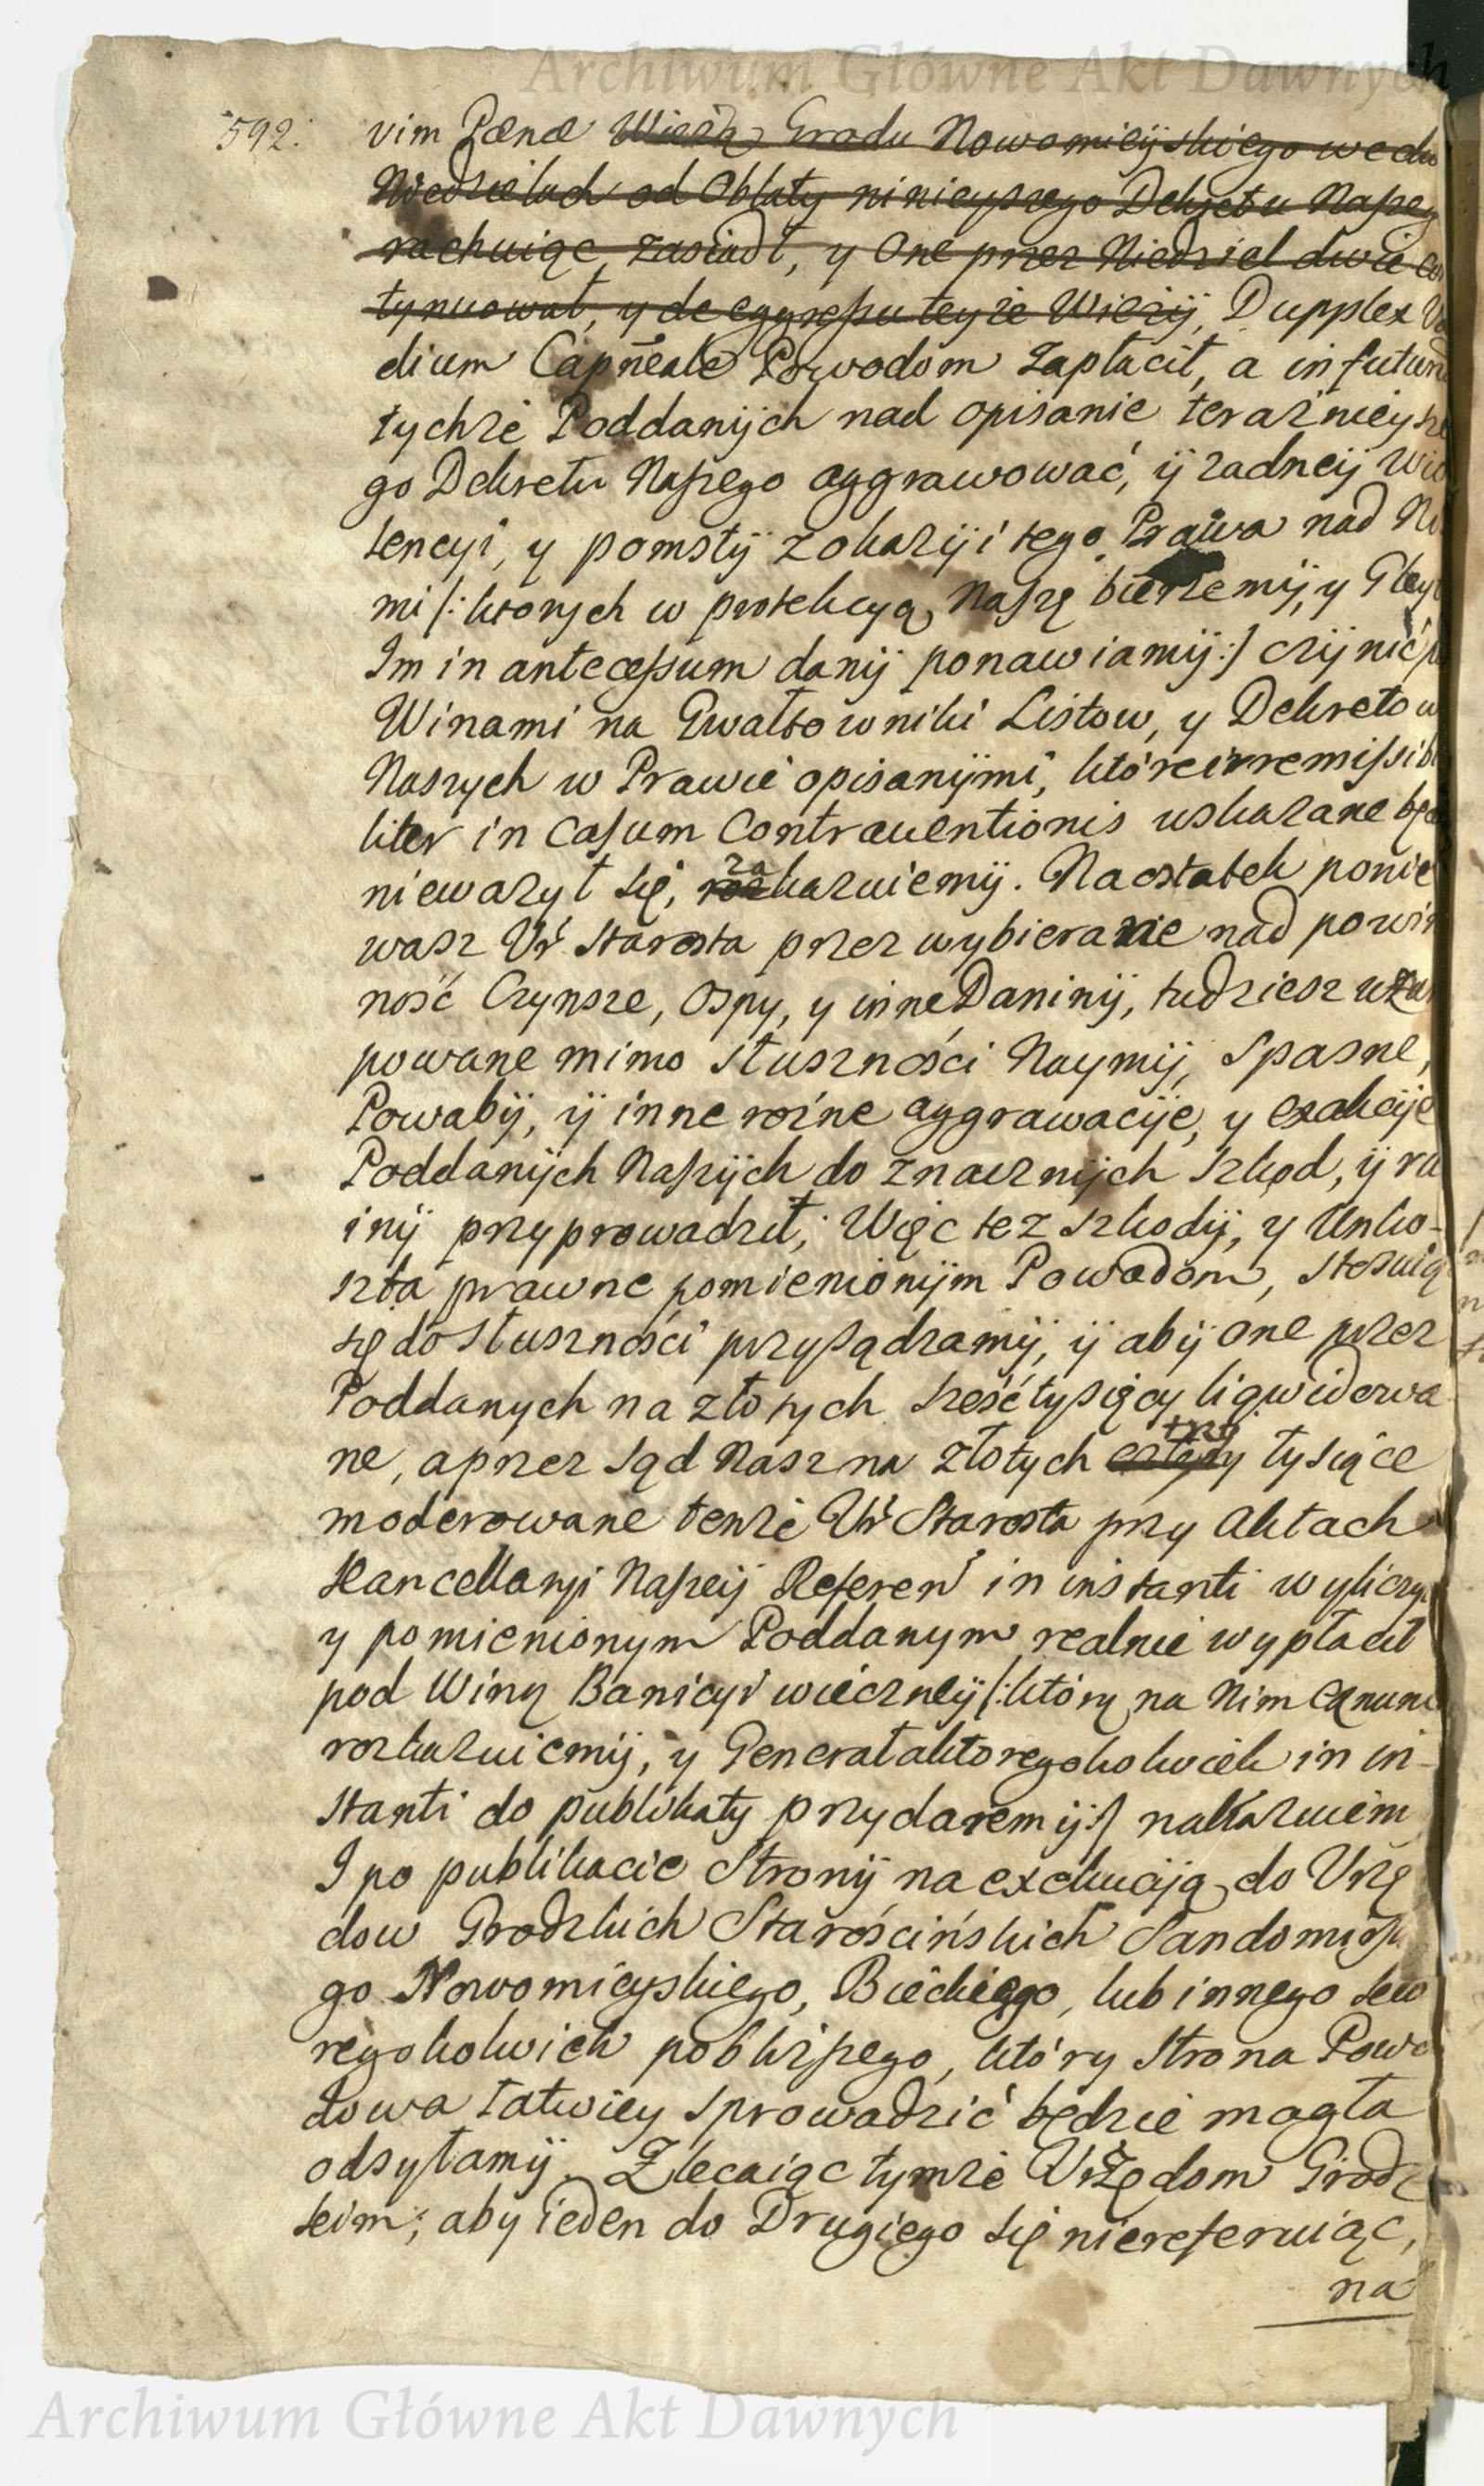 Archiwum Główne Akt Dawnych
592.
vim Pœnæ Wieżą Grodu Nowomieyskiego we dw
Niedzielach od Oblaty ninieyszego Dekretu Naszeg
rachuiąc zasiadł, y One przez Niedziel dwie con
tynuował, y de eggressu teyże Wieży, Dupplex Va
dium Capnẽale Powodom zapłacił, a in futuru
tychże Poddanÿch nad opisanie teraznieysze
go Dekretu Naszego aggrawować, ÿ zadneÿ Wio
lencyi, y pomstÿ z okazÿi tego Prawa nad Ni
mi /: ktorych w protekcyą Naszę bierzemÿ, y Gleyt
Im in antecessum danÿ ponawiamÿ :/ czÿnić p
Winami na Gwałtowniki Listow, y Dekretow
Naszych w Prawie opisanÿmi, które irremissibi
liter in casum Contrauentionis wskazane będ
nieważył się, roz za kazuiemÿ. Naostatek ponie
wasz Ur Starosta przez wybieranie nad powin
ność Czynsze, Ospy, y inne Daninÿ, tudziesz uzur
powane mimo słuszności Naymÿ, Spasne,
Powabÿ, ÿ inne rożne aggrawacÿe, y exakcÿe
Poddanÿch Naszÿch do znacznÿch szkod, ÿ ru
inÿ przyprowadził; Więc też szkodÿ, y Unko-
szta prawne pomienionÿm Powodom, stosuiąc
się do słuszności przysądzamÿ, ÿ abÿ one przez
Poddanych na złotych sześć tysięcy liqwidowa
ne, a przez sąd Nasz na złotych cztery trzy tysiące
moderowane tenże Ur Starosta przy Aktach
Kancellaryi Naszeÿ Referen in instanti wyliczył
y pomienionym Poddanym realnie wypłacił
pod Winą Banicyi wieczneÿ /: którą na Nim
rozkazuiemÿ, y Generała ktoregokolwiek in in-
stanti do publikaty przydaiemÿ :/ nakazuiem
I po publikacie Stronÿ na exekucÿą do Urzę
dow Grodzkich Starościńskich Sandomirskie
go Nowomieyskiego, Bieckiego, lub innego kto
regokolwiek pobliższego, który Strona Powo
dowa łatwiey sprowadzić będzie mogła
odsyłamÿ. Zlecaiąc tymże Urzędom Grodz
kim; aby ieden do Drugiego się niereferuiąc,
na
Archiwum Główne Akt Dawnych